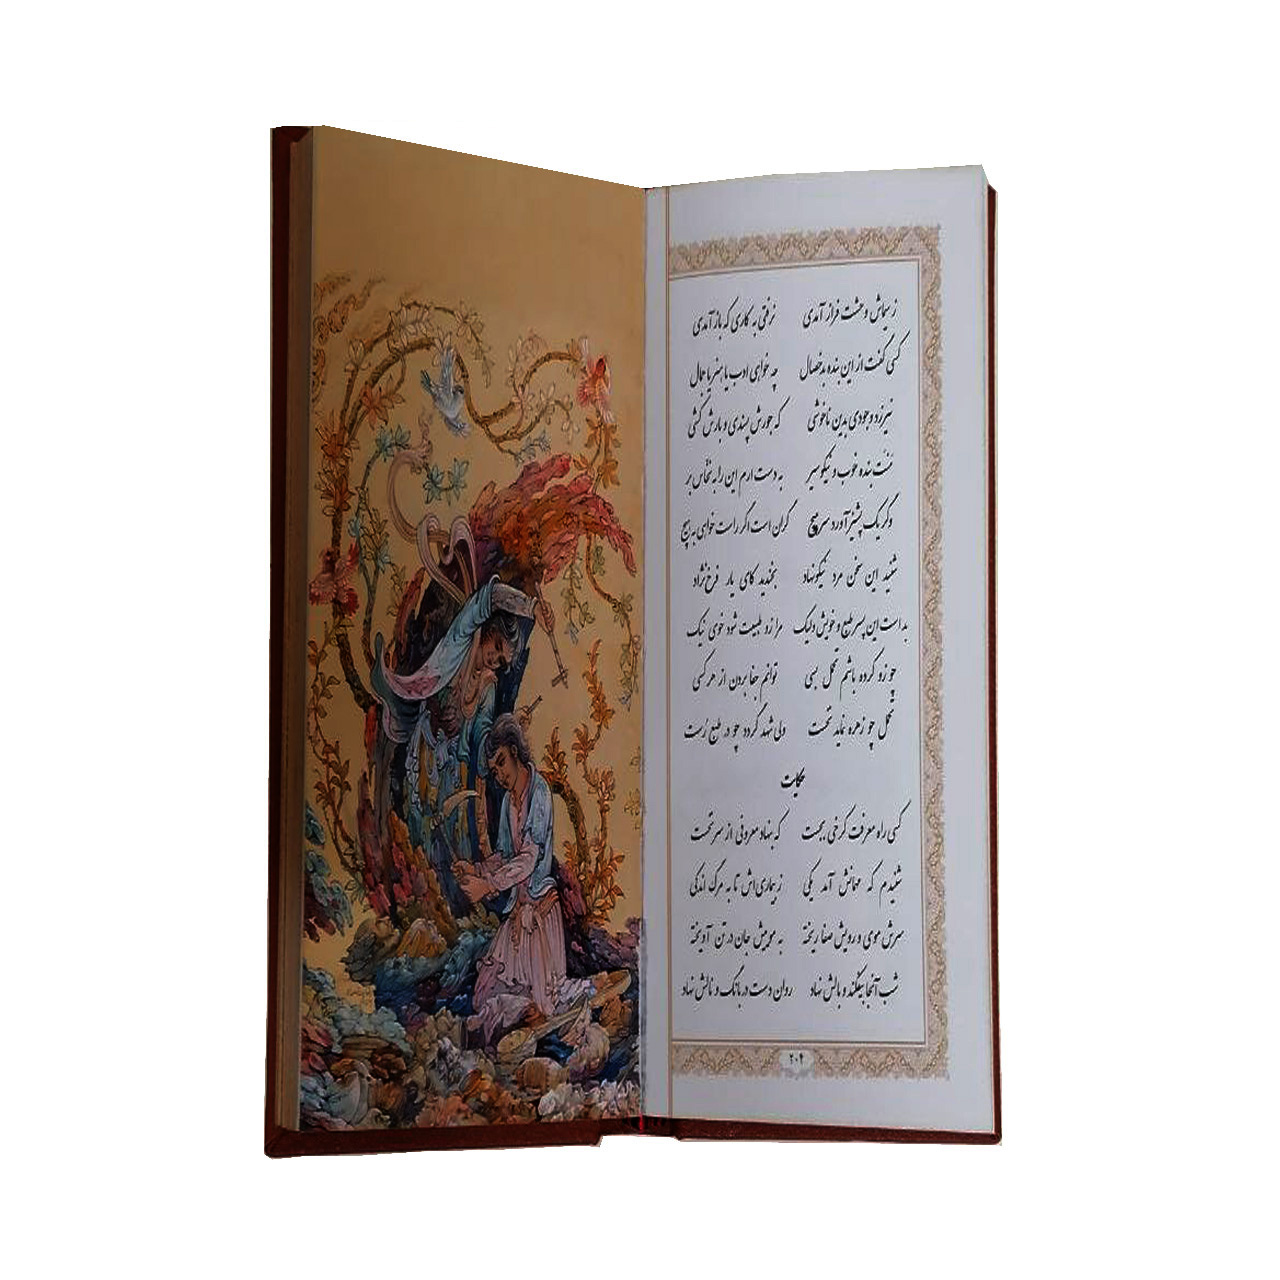 ز سیماش وحشت فراز آمدی نرفتی به کاری که باز آمدی
کسی گفت از این بنده بدخصال چه خواهی ادب یا هنر یا جمال
نیرزد وجودی بدین ناخوشی که جورش پسندی و بارش کشی
منت بنده خوب و نیکو سیر به دست آرم این را به نخاس بر
وگر یک پشیز آورد سر مپیچ گران است اگر راست خواهی به هیچ
شنید این سخن مرد نیکونهاد بخندید کای یار فرخ نژاد
بد است این پسر طبع و خویش ولیک مرا زو طبیعت شود خوی نیک
چو زو کرده باشم تحمل بسی توانم جفا بردن از هر کسی
تحمل چو زهرت نماید نخست ولی شهد گردد چو در طبع رست
حکایت
کسی راه معروف کرخی بجست که بنهاد معروفی از سر نخست
شنیدم که مهمانش آمد یکی ز بیماری‌اش تا به مرگ اندکی
سرش موی و رویش صفا ریخته به موییش جان در تن آویخته
شب آنجا بیفکند و بالش نهاد روان دست در بانگ و نالش نهاد
۲۰۴